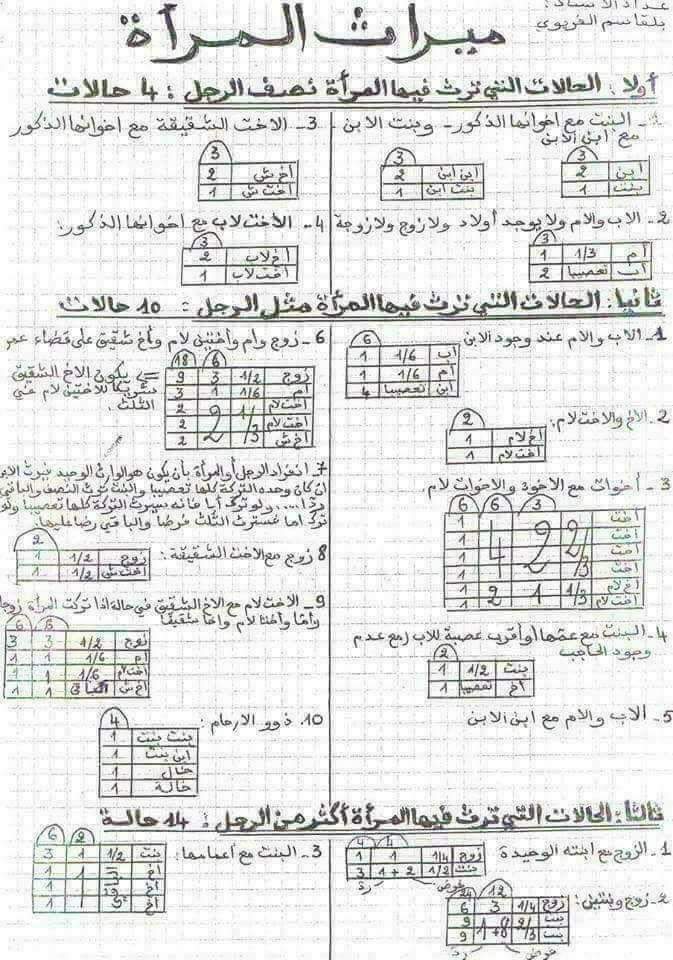 عداد الأستاذ:
بلقاسم الغريوي
ميراث المرأة
أولا: الحالات التي ترث فيها المرأة نصف الرجل: 4 حالات
1- البنت مع اخوانها الذكور - وبنت الابن
مع ابن الابن
3
ابن 2
بنت 1
3
ابن ابن 2
بنت ابن 1
2- الاب والام ولا يوجد أولاد ولا زوج ولا زوجة
3
أم 1/3 1
اب تعصيبا 2
3- الاخت الشقيقة مع اخوانها الذكور
3
أخ ش 2
اخت ش 1
4- الاخت لاب مع اخوانها الذكور:
3
أخ لاب 2
اخت لاب 1
ثانيا: الحالات التي ترث فيها المرأة مثل الرجل: 10 حالات
1- الاب والام عند وجود الابن
6
اب 1/6 1
أم 1/6 1
ابن تعصيبا 4
2- الاخ والاخت لام:
2
أخ لام 1
اخت لام 1
3- أخوات مع الاخوة والاخوات لام
3 6 6
اخت 2/3 2 4 1
اخت 1
اخت 1
اخت 1
أخ لام 1/3 1 2 1
اخت لام 1
4- البنت مع عمها أو أقرب عصبة للاب (مع عدم
وجود الحاجب
2
بنت 1/2 1
أخ تعصيبا 1
5- الاب والام مع ابن الابن
6- زوج وام وأختين لام وأخ شقيق على قضاء عمر
6 18
زوج 1/2 3 9
أم 1/6 1 3
اخت لام 1/3 2 2
اخت لام 2
أخ ش 2
⇐ يكون الاخ الشقيق
شريكا للاختين لام في
الثلث.
7- انفراد الرجل أو المرأة بأن يكون هو الوارث الوحيد فيرث الابن
ان كان وحده التركة كلها تعصيبا والبنت ترث النصف والباقي
ردا.... ولو ترك أبا فانه سيرث التركة كلها تعصيبا ولو
ترك اما فسترث الثلث فرضا والباقي ردا عليها.
8 زوج مع الاخت الشقيقة:
2
زوج 1/2 1
اخت ش 1/2 1
9- الاخت لام مع الاخ الشقيق في حالة اذا تركت المرأة زوجا
واما وأختا لام واخا شقيقا
6 6
زوج 1/2 3 3
أم 1/6 1 1
اخت لام 1/6 1 1
اخ ش الباقي 1 1
10. ذوو الارحام:
4
بنت بنت 1
ابن بنت 1
خال 1
خالة 1
ثالثا: الحالات التي ترث فيها المرأة أكثر من الرجل: 14 حالة
1- الزوج مع ابنته الوحيدة
4 4
زوج 1/4 1 1
بنت 1/2 2 + 1 3
فرض رد
2- زوج وبنتين:
12 24
زوج 1/4 3 6
بنت 2/3 8+1 9
بنت 9
فرض رد
3- البنت مع أعمامها:
2 6
بنت 1/2 1 3
أخ 1 1
أخ 1
أخ 1